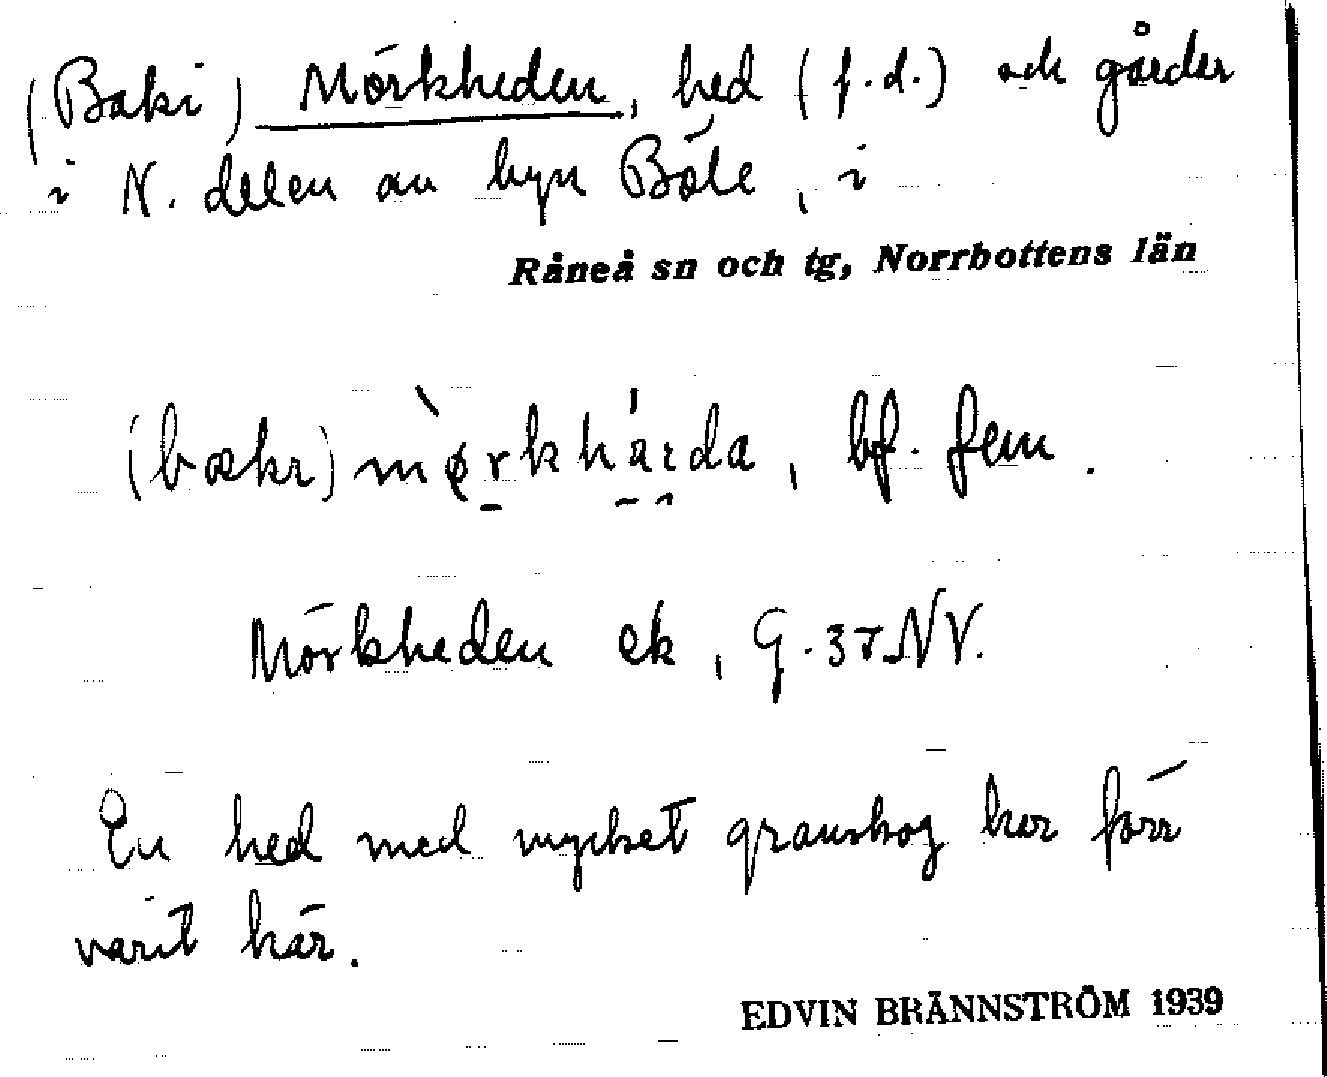 (Baki) Mörkheden, hed (f.d.) och gårder
i N. delen av byn Böle, i
Råneå sn och tg, Norrbottens län
(bækı) mø̀rkhárda, bf. fem.
Mörkheden ek, G. 37 NV.
En hed med mycket granskog har förr
varit här.
EDVIN BRÄNNSTRÖM 1939